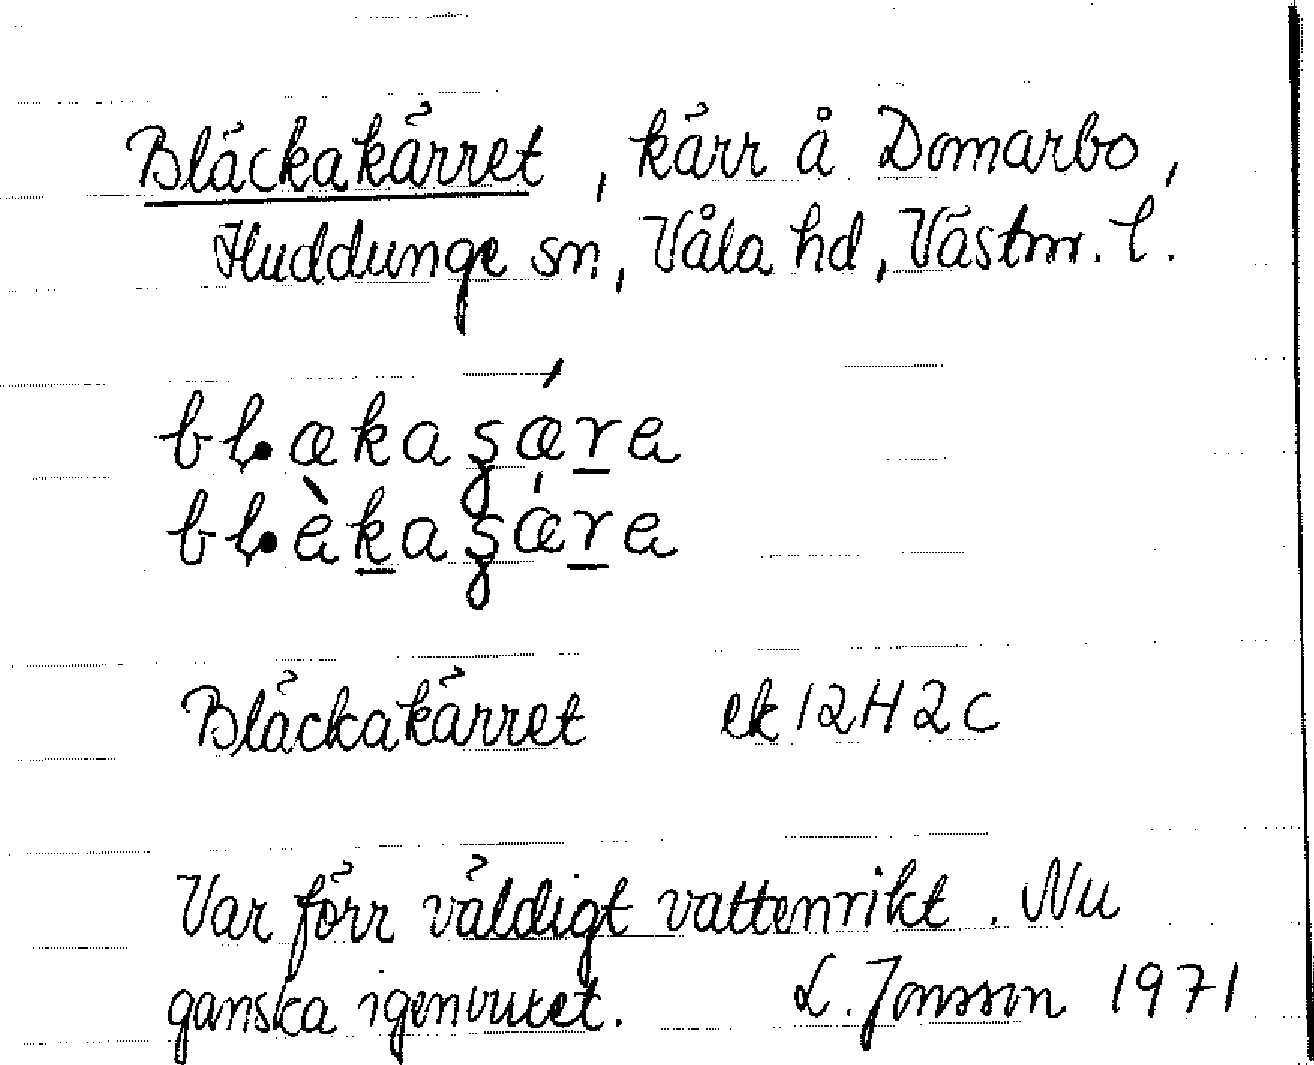 Bläckakärret, kärr å Domarbo,
Huddunge sn, Våla hd, Västm. l.
Bläckakärret ek 12H2c
Var förr väldigt vattenrikt. Nu
ganska igenvuxet. L. Jonsson 1971